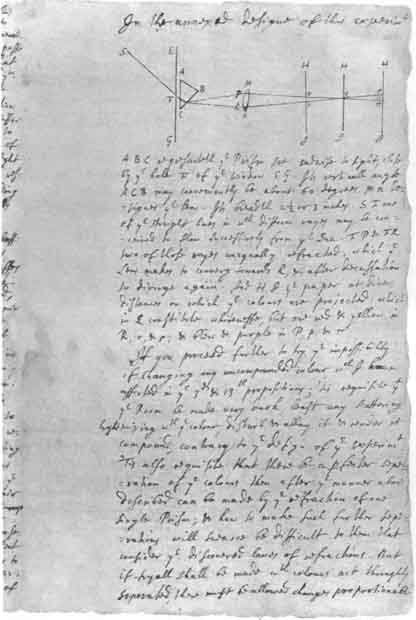 In the annexed designe of this experimt
S E A B T C G M P R N H H H
ABC representeth ye Prism set endwise to sight, close
by ye hole F of ye window EG. Its verticall angle
ACB may conveniently be about 60 degrees. MN de-
signes ye Lens. Its breadth 2½ or 3 inches. ST one
of ye streight lines in wch difform rayes may be con-
ceived to flow successively from ye Sun. FP & FR
two of those rayes unequally refracted, which ye
Lens makes to converge towards Q, & after decussation
to diverge again. And HI ye paper at divers
distances on which ye colours are projected, which
in Q constitute whitenesse, but are red & yellow in
R, r, & ρ; & blew & purple in P, p, & π.
If you proceed further to try ye impossibility
of changing any uncompounded colour wch I have
asserted in ye 3d & 13th propositions, 'tis requisite yt
ye Room be made very dark, least any scattering
light mixing wth ye colour disturb & allay it & render it
compound, contrary to ye designe of ye experimt
'Tis also requisite that there be a perfecter sepa-
ration of ye colours then after ye manner above
described can be made by ye refraction of one
single Prism, & how to make such further sepa-
rations will scarce be difficult to them that
consider ye discovered laws of refractions. But
if tryall shall be made wth colours not throughly
separated, there must be allowed changes proportionable